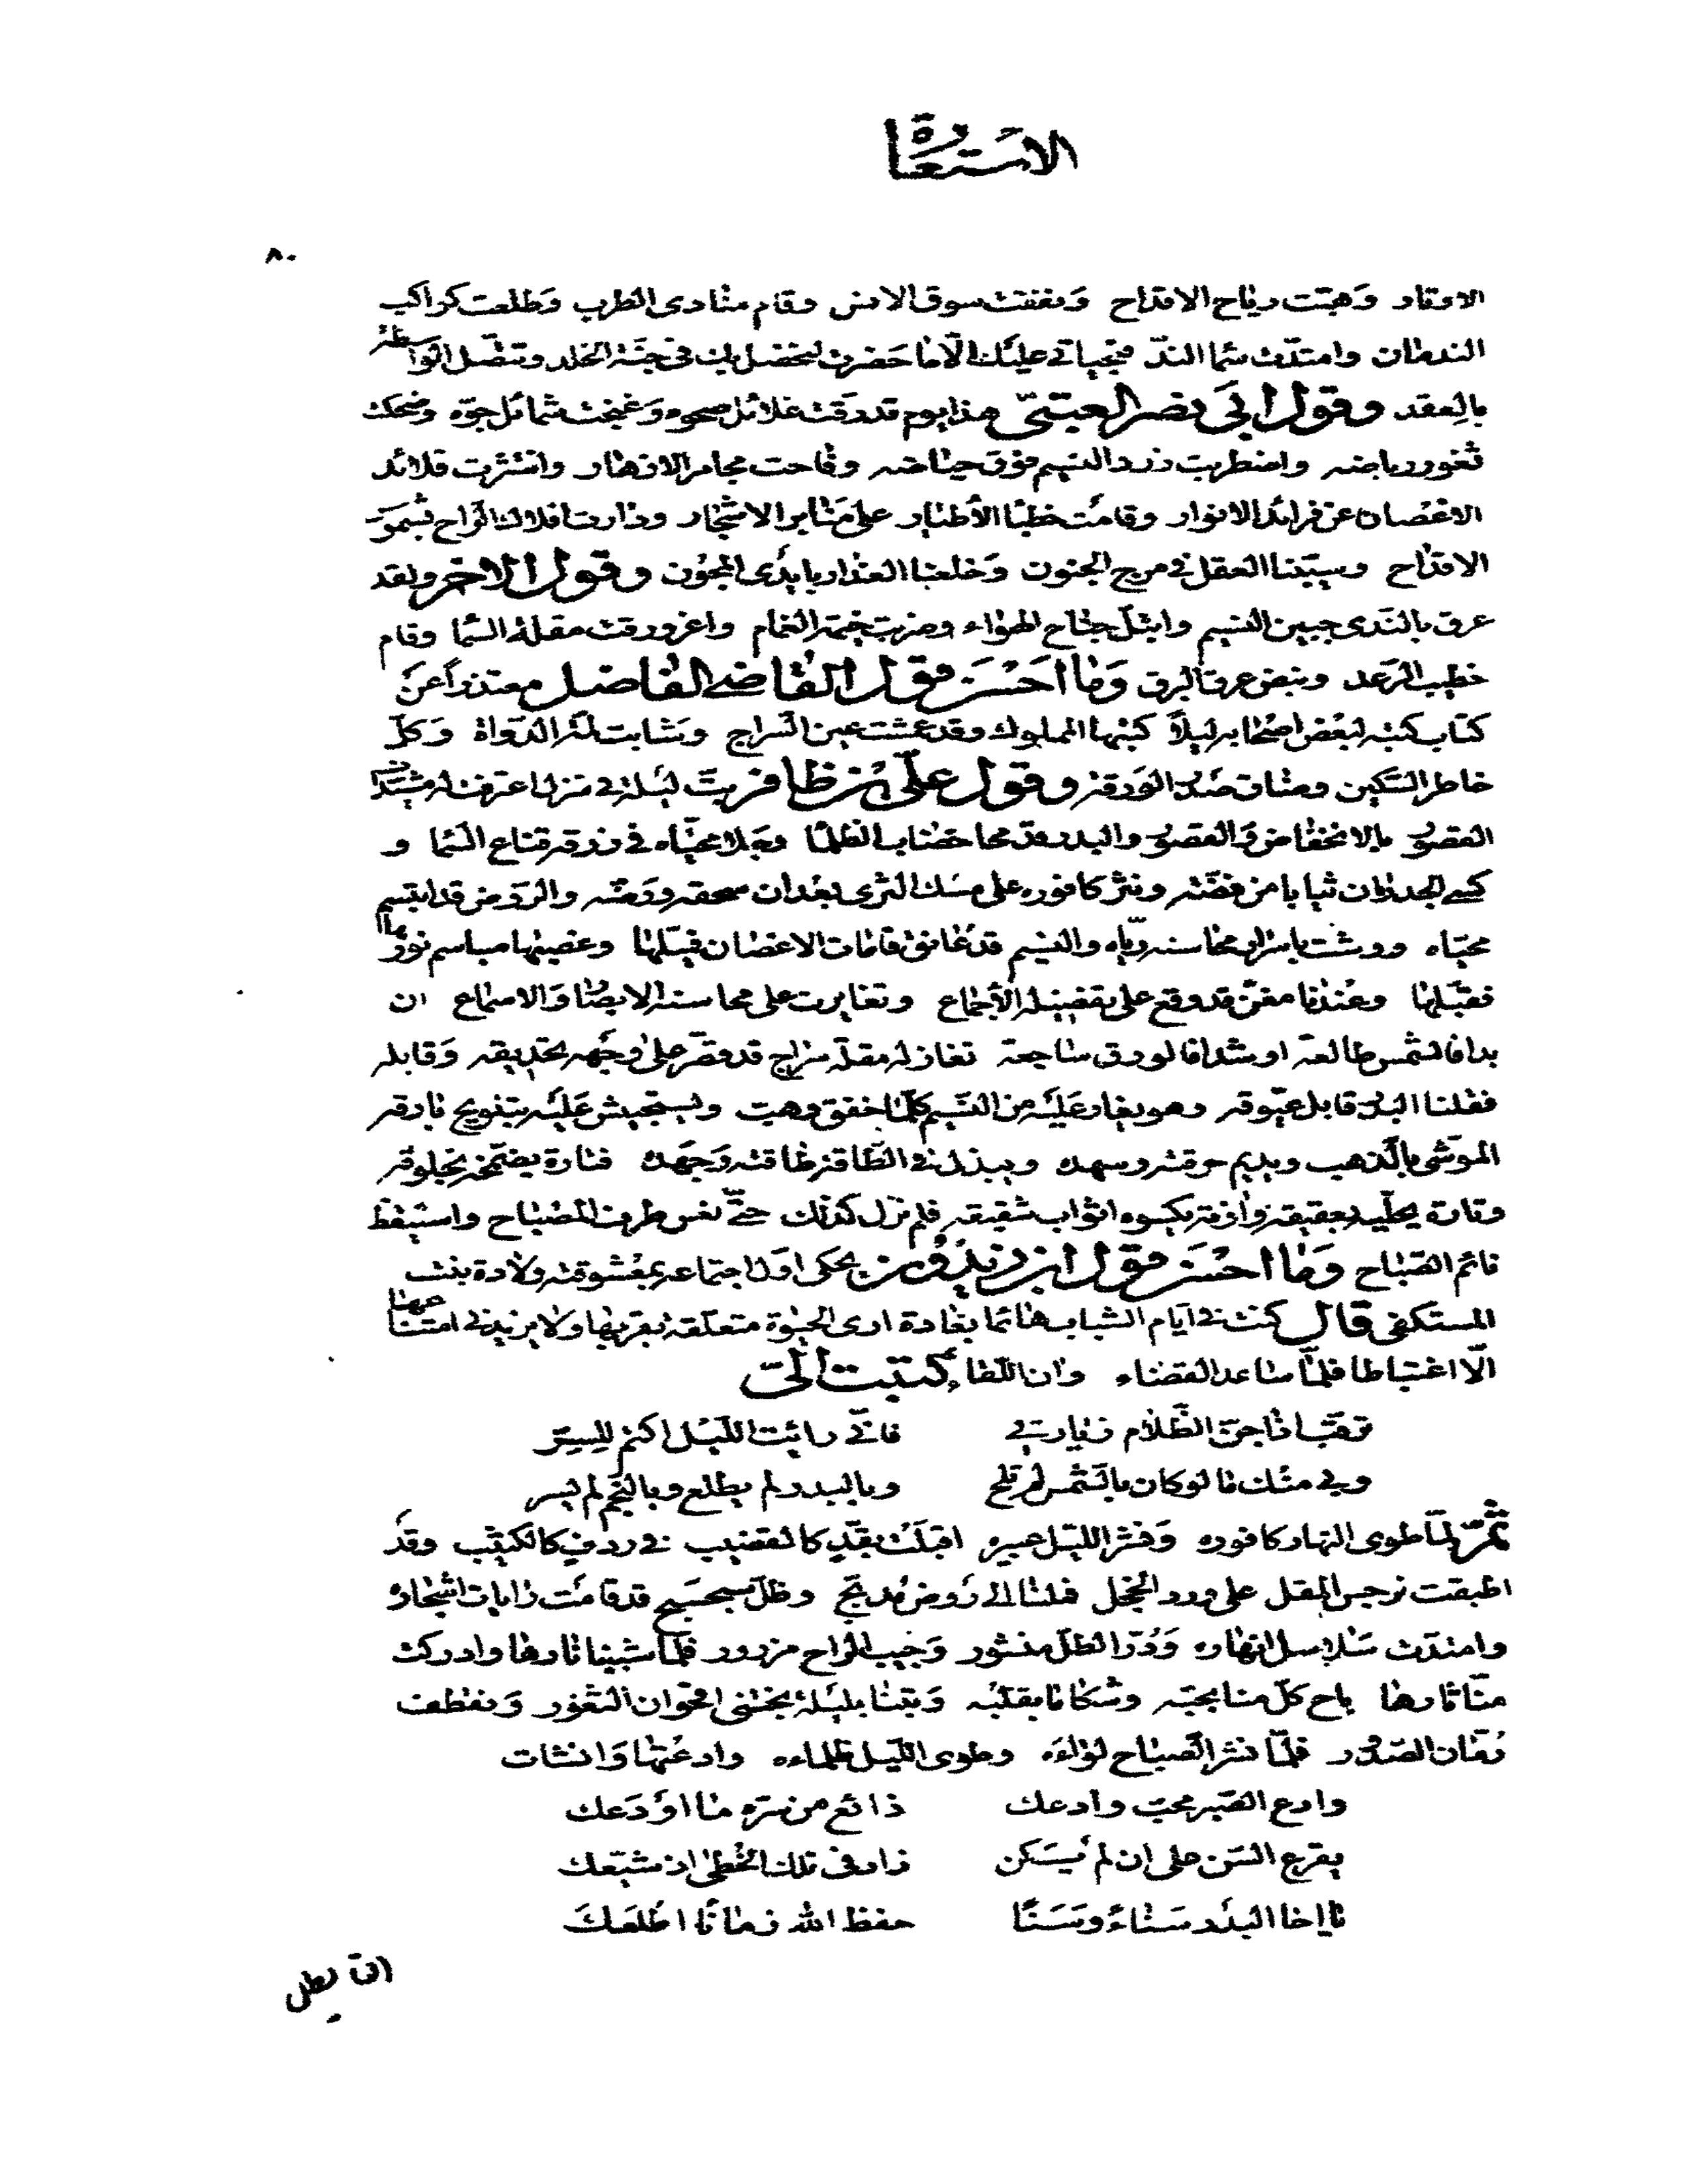 الاستعارة
٨٠
الاوتار وهبّت رياح الاقداح ونفقت سوق الانس وقام منادى الطرب وطلعت كواكب
الندمان وامتدّت سما الندّ فبحياتى عليك الّا ما حضرت لنحصل بك فى جنّة الخلد وتتّصل الواسطة
بالعقد وقول ابى نصر العتبىّ هذا يوم قد رقّت غلائل صحوه وغنجت شمائل جوّه وضحكت
ثغور رياضه واضطربت زرد النسيم فوق حياضه وفاحت مجامر الازهار وانتثرت قلائد
الاغصان عن فرائد الانوار وقامت خطبا الأطيار على منابر الاشجار ودارت افلاك الراح بشموس
الاقداح وسيّبنا العقل فى مرج الجنون وخلعنا العذار بايدى المجون وقول الاخر ولقد
عرق بالندى جبين النسيم وابتلّ جناح الهواء وضربت خيمة الغمام واغرورقت مقلة السّما وقام
خطيب الرّعد ونبض عرق البرق وما احسن قول القاضى الفاضل معتذراً عن
كتاب كتبه لبعض اصحابه ليلاً كتبها المملوك وقد عشت عين السّراج وشابت لمّة الدّواة وكلّ
خاطر السّكين وضاق صدر الورقة وقول علىّ بن ظافر بتّ ليلة فى منزل اعترفت له مشيّدات
القصور بالانخفاض والقصور والبدر قد محا خضاب الظلما وجلا محيّاه فى زرقة قناع السّما و
كسى الجدران ثيابا من فضّة ونثر كافوره على مسك الثرى بعد ان سحقه ورضّه والرّوض قد ابتسم
محيّاه ووشت باسرار محاسنه ريّاه والنسيم قد عانق قامات الاغصان فميّلها وغصبها مباسم نورها
فقبّلها وعندنا مغنّ قد وقع على تفضيله الأجماع وتغايرت على محاسنه الابصار والاسماع ان
بدا فالشّمس طالعة او شدا فالورق ساجعة تغازله مقلة سراج قد قصّر على وجهه تحديقه وقابله
فقلنا البدر قابل عيّوقه وهو يغار عليه من النّسيم كلّما خفق وهبّ ويستجيش عليه بتلويح بارقه
الموشّى بالذهب ويديم حرقته وسهده ويبذل فى الطافه طاقته وجهده فتارة يضمّخه بخلوقه
وتارة يحلّيه بعقيقه وآونة يكسوه اثواب شقيقه فلم نزل كذلك حتّى نعس طرف المصباح واستيقظ
نائم الصّباح وما احسن قول ابن زيدون يحكى اوّل اجتماعه بمعشوقته ولادة بنت
المستكفى قال كنت فى ايام الشباب هائما بغادة ارى الحيوة متعلّقة بقربها ولا يزيدنى امتناعها
الّا اغتباطا فلمّا ساعد القضاء وآن اللّقاء كتبت الىّ
ترقّب اذا جنّ الظّلام زيارتى فانّى رايت اللّيل اكتم للسرّ
وبى منك ما لو كان بالشّمس لم تلح وبالبدر لم يطلع وبالنّجم لم يسر
ثمّ لمّا طوى النهار كافوره ونشر اللّيل عبيره اقبلت بقدّ كالقضيب فى ردف كالكثيب وقد
اطبقت نرجس المقل على ورد الخجل فملنا الى روض مدبّج وظلّ سجسج قد قامت رايات اشجاره
وامتدّت سلاسل انهاره ودُرّ الطلّ منثور وجيب الراح مزرور فلمّا شببنا نارها وادركت
منّا ثارها باح كلّ منا بحبّه وشكا ما بقلبه وبتنا بليلة نجتنى اقحوان الثّغور ونقطف
رمّان الصّدور فلمّا نشر الصباح لواءه وطوى اللّيل ظلماءه وادعتها وانشات
وادع الصّبر محبّ وادعك ذائع من سرّه ما اودعك
يقرع السّن على ان لم يكن زاد فى تلك الخطى اذ شيّعك
يا اخا البدر سناءً وسنًا حفظ الله زمانًا اطلعك
ان يطل